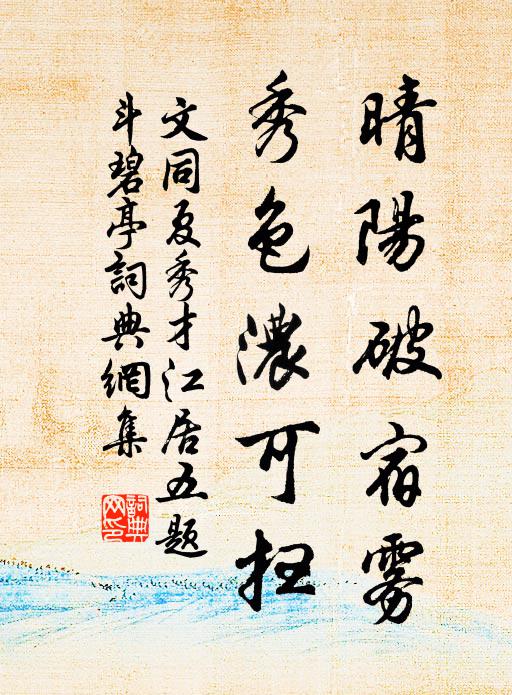 晴陽破宿雾
秀色濃可扫
文同夏秀才江居五题
斗碧亭詞典網集
詞典网印